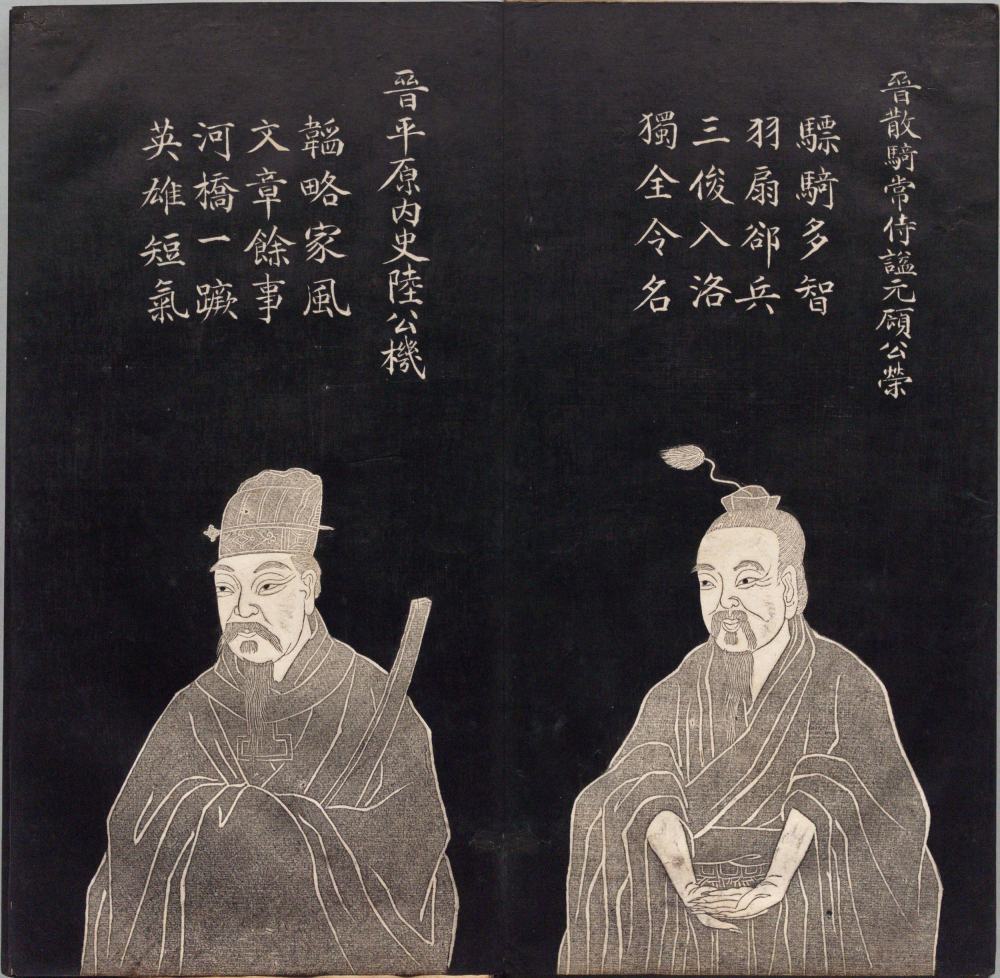 晉散騎常侍諡元顧公榮
驃騎多智
羽扇郤兵
三俊入洛
獨全令名
晉平原内史陸公機
韜略家風
文章餘事
河橋一蹶
英雄短氣